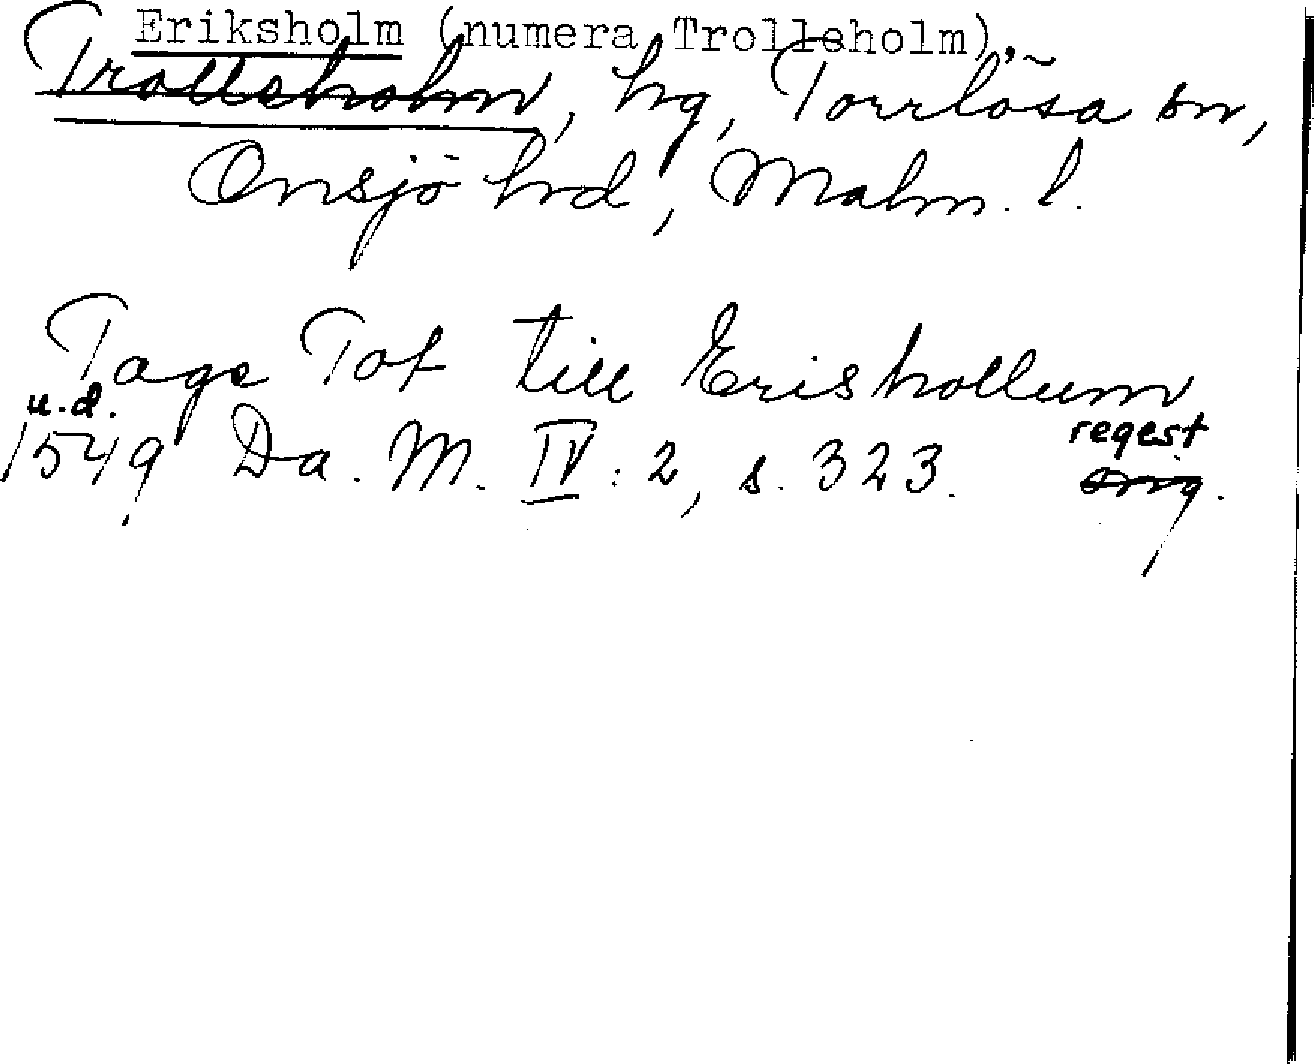 Eriksholm (numera Trolleholm),
Trolleholm, hg, Torrlösa sn,
Onsjö hrd, Malm. l.
Tage Tot till Erishollum
u.d. regest
1549 Da. M. IV: 2, s. 323. orig.